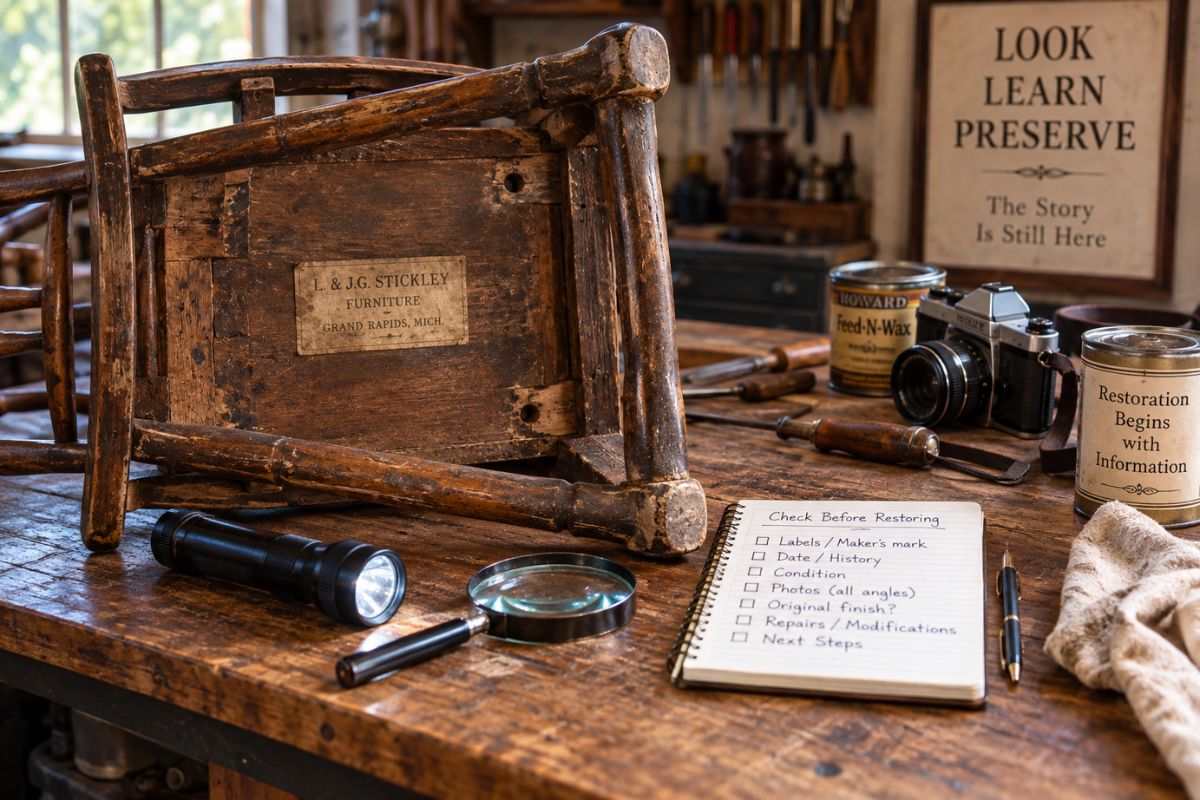 L. & J.G. STICKLEY
FURNITURE
GRAND RAPIDS, MICH.
LOOK
LEARN
PRESERVE
The Story
Is Still Here
HOWARD
Feed-N-Wax
Restoration
Begins
with
Information
Check Before Restoring
Labels / Maker's mark
Date / History
Condition
Photos (all angles)
Original finish?
Repairs / Modifications
Next Steps